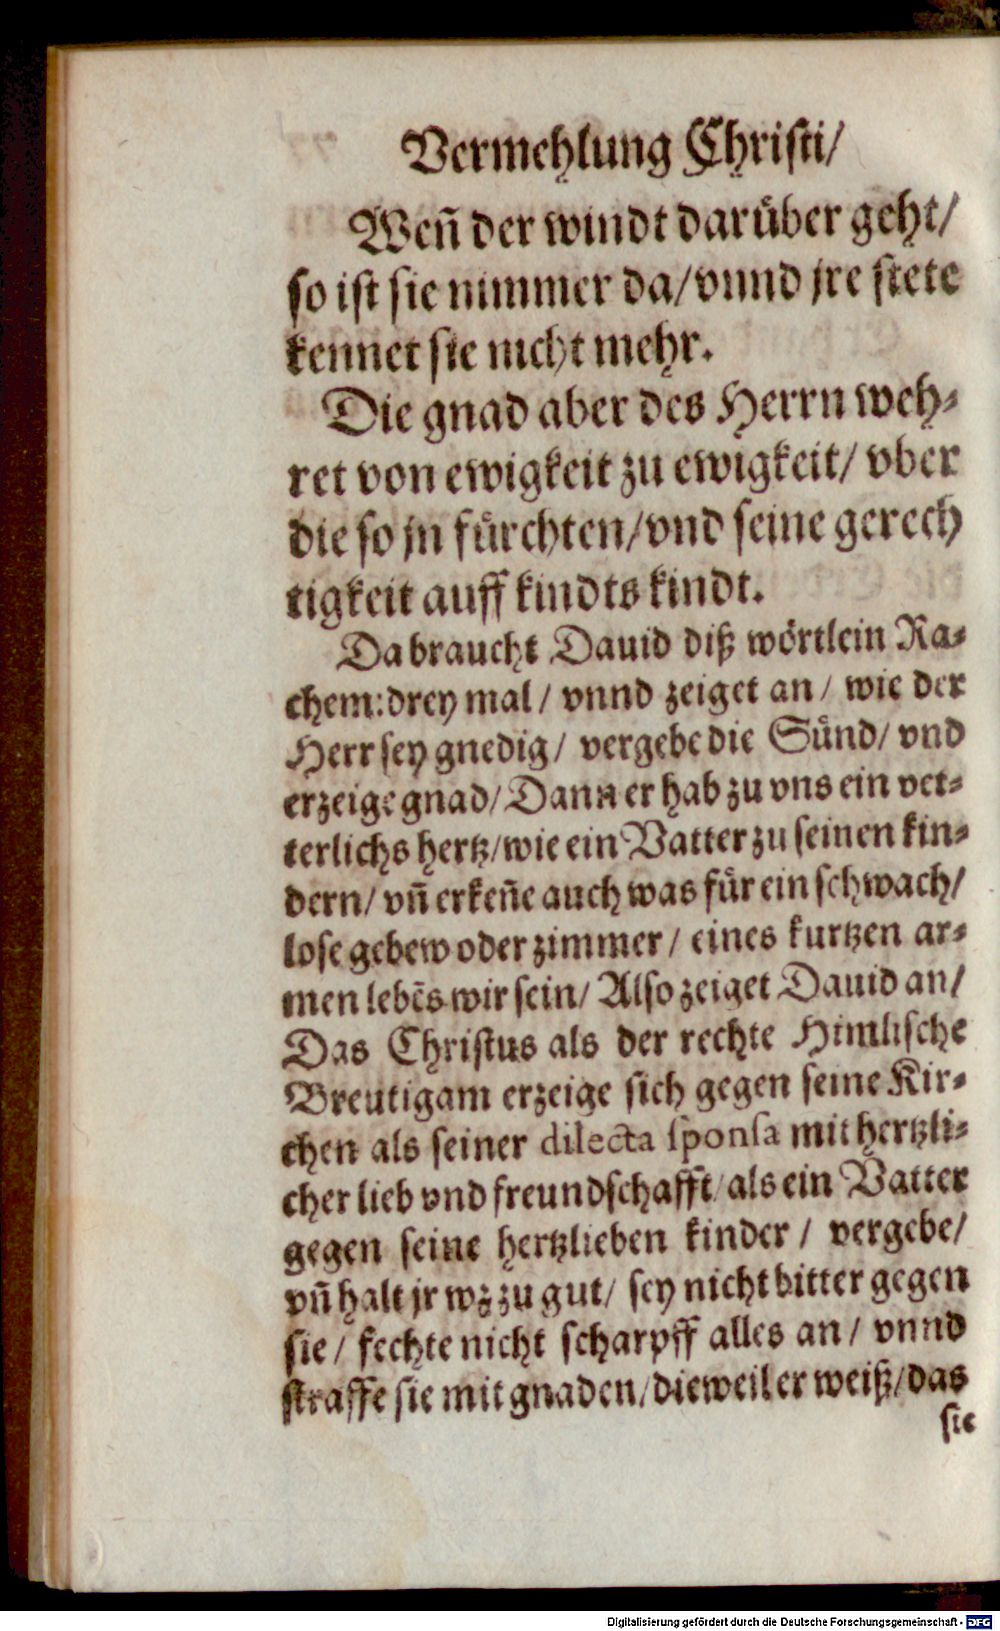 Vermehlung Christi/
Weñ der windt darüber geht/
so ist sie nimmer da/ vnnd jre stete
kennet sie nicht mehr.
Die gnad aber des Herrn weh⸗
ret von ewigkeit zu ewigkeit/ vber
die so jn fürchten/ vnd seine gerech
tigkeit auff kindts kindt.
Da braucht Dauid diß wörtlein Ra⸗
chem: drey mal/ vnnd zeiget an/ wie der
Herr sey gnedig/ vergebe die Sünd/ vnd
erzeige gnad/ Dann er hab zu vns ein vet⸗
terlichs hertz/ wie ein Vatter zu seinen kin⸗
dern/ vñ erkeñe auch was für ein schwach/
lose gebew oder zimmer/ eines kurtzen ar⸗
men lebēs wir sein/ Also zeiget Dauid an/
Das Christus als der rechte Himlische
Breutigam erzeige sich gegen seine Kir⸗
chen als seiner dilecta sponsa mit hertzli⸗
cher lieb vnd freundschafft/ als ein Vatter
gegen seine hertzlieben kinder/ vergebe/
vñ halt jr wz zu gut/ sey nicht bitter gegen
sie/ fechte nicht scharpff alles an/ vnnd
straffe sie mit gnaden/ dieweil er weiß/ das
sie
Digitalisierung gefördert durch die Deutsche Forschungsgemeinschaft - DFG